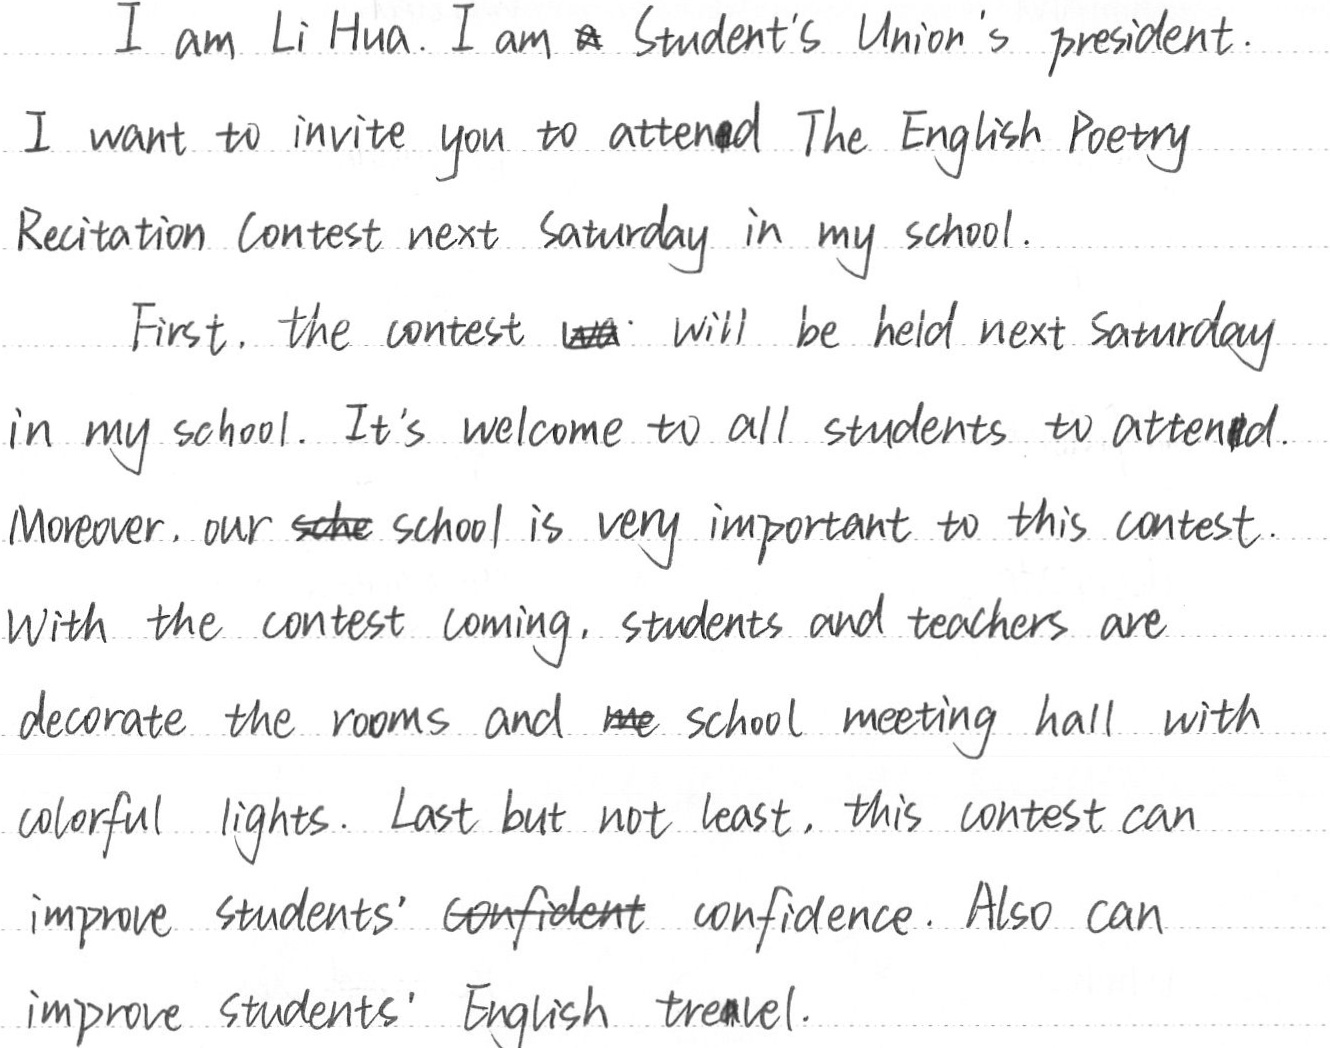 I am Li Hua. I am Student's Union's president.
I want to invite you to attend The English Poetry
Recitation Contest next Saturday in my school.
First, the contest will be held next Saturday
in my school. It's welcome to all students to attend.
Moreover, our school is very important to this contest.
With the contest coming, students and teachers are
decorate the rooms and school meeting hall with
colorful lights. Last but not least, this contest can
improve students' confidence. Also can
improve students' English